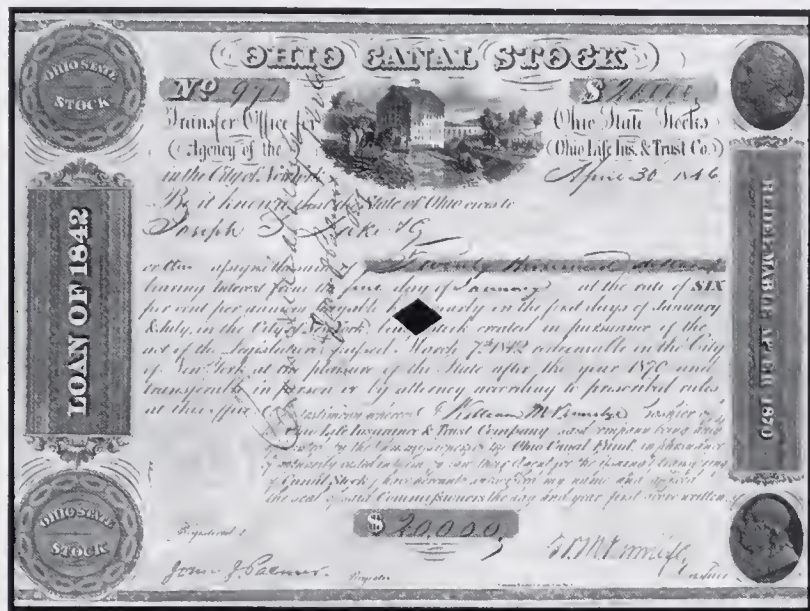 OHIO CANAL STOCK
OHIO STATE STOCK
No. 971
$ 20,000
Transfer Office for Ohio State Stocks
(Agency of the (Ohio Life Ins. & Trust Co.)
in the City of New York April 30 1846
Be it known that the State of Ohio owes to
Joseph
or their assigns the sum of Twenty thousand dollars
bearing Interest from the first day of January at the rate of SIX
per cent per annum payable half yearly on the first days of January
& July, in the City of New York, being stock created in pursuance of the
act of the Legislature passed March 7th 1842 redeemable in the City
of New York at the pleasure of the State after the year 1870 and
transferable in person or by attorney according to prescribed rules
at this office. In testimony whereof I William Cashier of the
Ohio Life Insurance & Trust Company said company being duly
by the Commissioners of the Ohio Canal Fund, in pursuance
of authority vested in them
of Canal Stock, have hereunto subscribed my name and affixed
the seal of said Commissioners the day and year first above written.
LOAN OF 1842
REDEEMABLE AFTER 1870
OHIO STATE STOCK
$ 20,000
Registered
John J. Palmer.
Register
Cashier